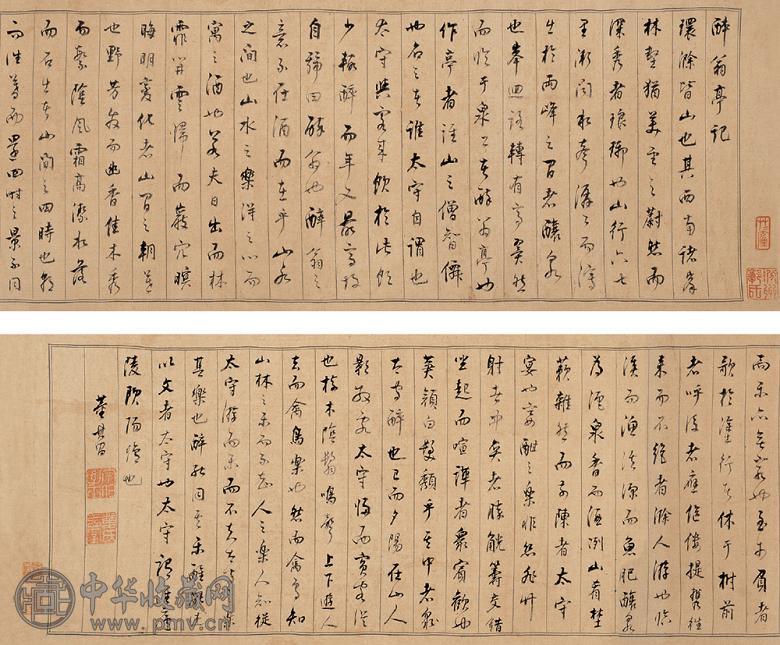 醉翁亭記
環滁皆山也其西南諸峯
林壑猶美望之蔚然而
深秀者瑯琊也山行六七
里漸聞水聲潺潺而瀉
出於兩峰之間者釀泉
也峯迴路轉有亭翼然
而臨于泉上者醉翁亭也
作亭者誰山之僧智僊
也名之者誰太守自謂也
太守與客來飲於此飲
少輒醉而年又最高故
自號曰醉翁也醉翁之
意不在酒而在乎山水
之間也山水之樂得之心而
寓之酒也若夫日出而林
霏開雲歸而巖穴暝
晦明變化者山間之朝暮
也野芳發而幽香佳木秀
而繁陰風霜高潔水落
而石出者山間之四時也朝
而往暮而還四時之景不同
而樂亦無窮也至于負者
歌於塗行者休于樹前
者呼後者應傴僂提攜往
來而不絕者滁人游也臨
溪而漁溪深而魚肥釀泉
為酒泉香而酒冽山肴野
蔌雜然而前陳者太守
宴也宴酣之樂非絲非竹
射者中奕者勝觥籌交錯
坐起而諠譁者衆賓歡也
蒼顏白髮頹乎其中者
太守醉也已而夕陽在山人
影散亂太守歸而賓客從
也樹木陰翳鳴聲上下遊人
去而禽鳥樂也然而禽鳥知
山林之樂而不知人之樂人知從
太守游而樂而不知太守之樂
其樂也醉能同其樂醒能述
以文者太守也太守謂誰廬
陵歐陽脩也
董其昌
中华收藏网
www.pmv.cn